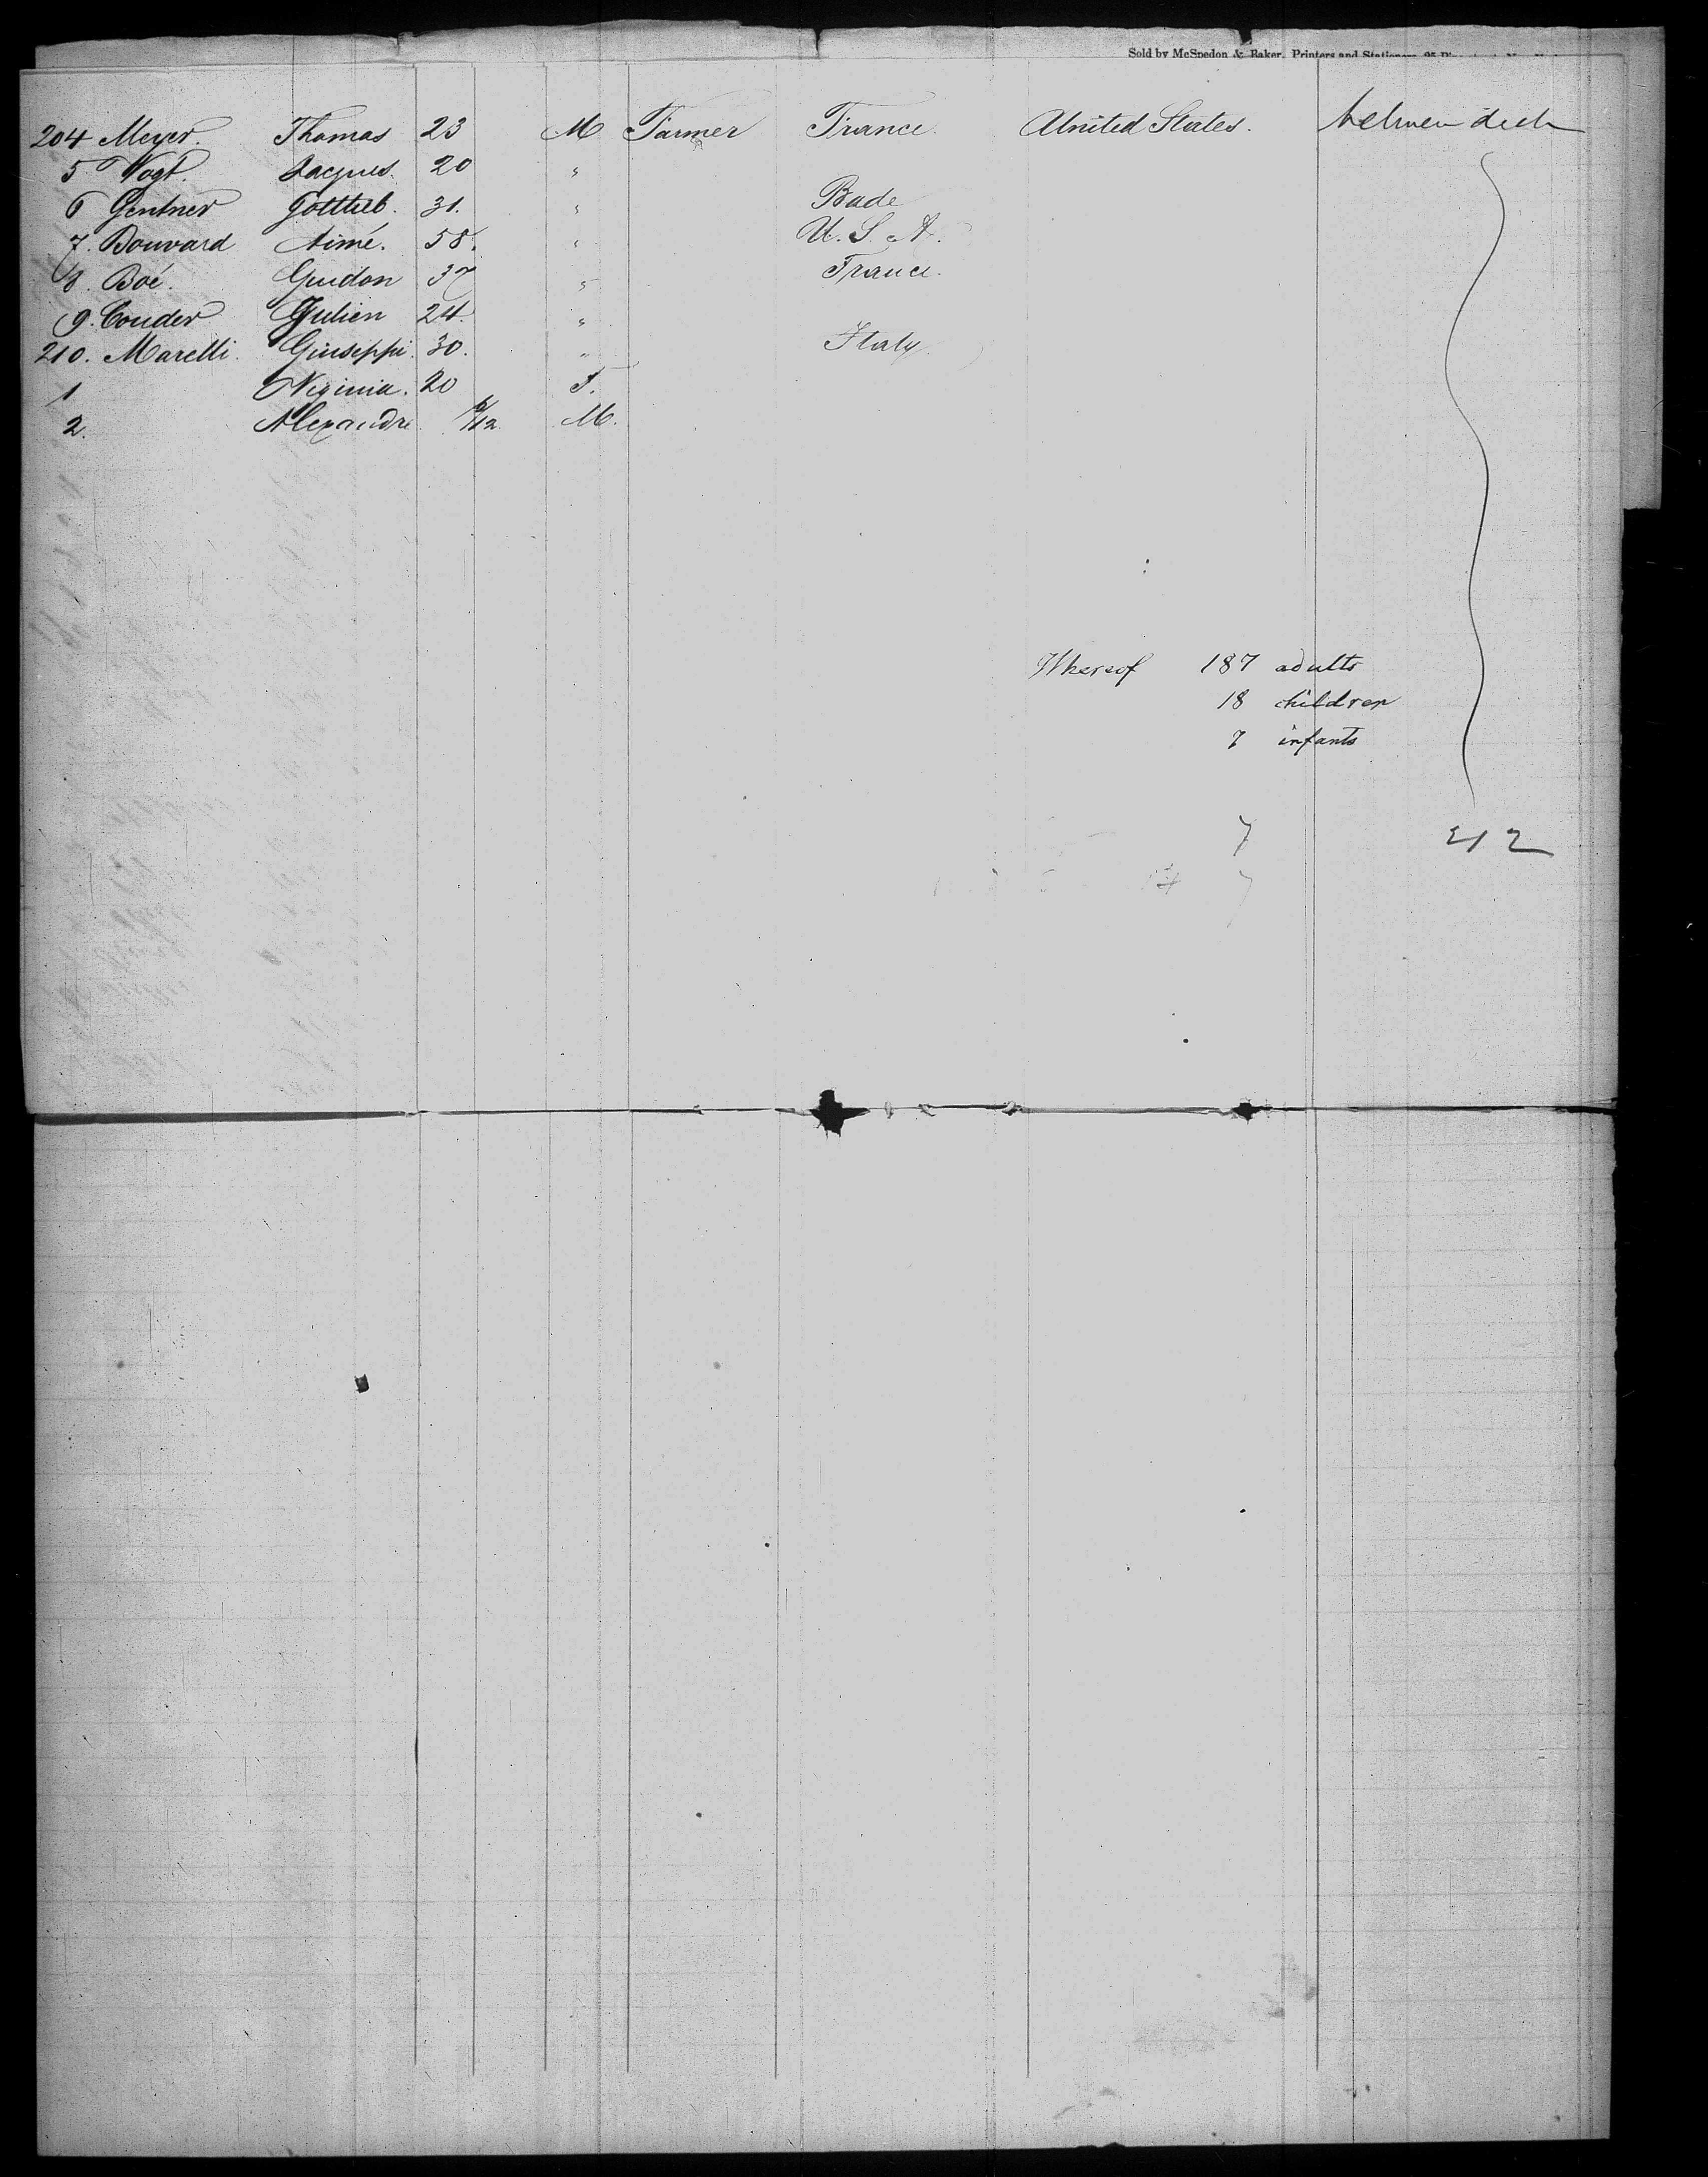 Sold by McSpedon & Baker, Printers and Stationers, 25
204 Meyer. Thomas 23 M Farmer France. United States. between deck
5 Vogt. Jacques. 20 "
6 Gentner Gottlieb. 31. " Bade
7. Bouvard Aimé. 58. " U. S. A.
8. Boé. Guidon 37 " France.
9. Couder Julien 24. "
210. Marelli. Giuseppi. 30. " Italy.
1 Virginia. 20 F.
2. Alexandre /12 M.
Whereof 187 adults
18 children
7 infants
7
212
7